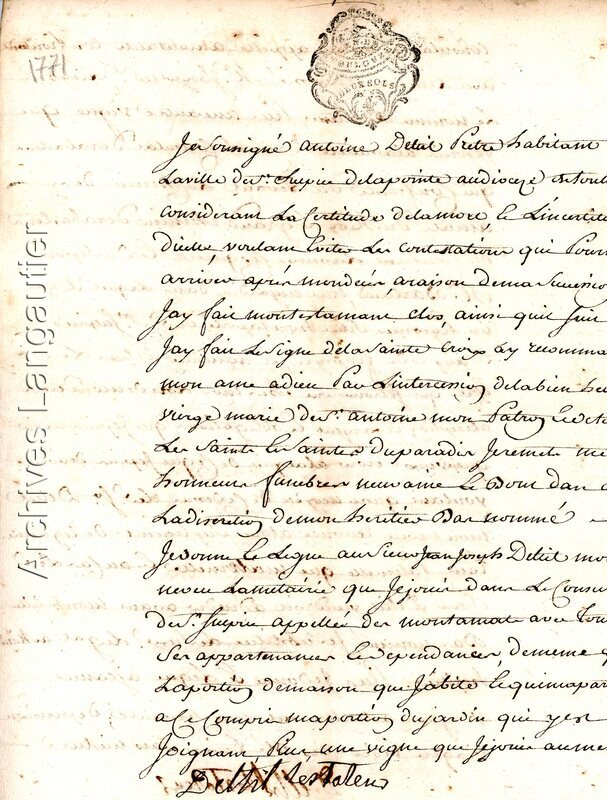 1771
TOULOUSE
DEUX SOLS
Je soussigné antoine Delcil Pretre habitant
Laville de St. Supice delapointe audioceze detoul
considerant La Certitude delamort Le Lincertit
dicelle voulant Eviter Les contestations qui Pourr
arriver aprés mondeces, araison dema Successio
Jay fait montestamant clos, ainsi quil Suit
Jay fait Lesigne dela Sainte Croix Ay recomma
mon ame adieu Par Lintercession delabien heu
vierge marie de St. antoine mon Patron Et de to
Les Saints Et Saintes duparadis Jeremets me
honneurs funebres neuvaine Et Bout dan a
Ladiscretion demon heritier Bas nommé
Jedonne Et Legue au Sieur Jean Joseph Delcil mo
neveu Lamétairie que Jejouir dans Le Consu
de St. Supice appellée des montamat avec tou
Ses appartenances Et dependances, dememe q
Laportion demaison que Jabite Lequimapar
a Ce Compris maportion dujardin qui yest
Joignant, Plus une vigne que Jejouir aume
Archives Langautier